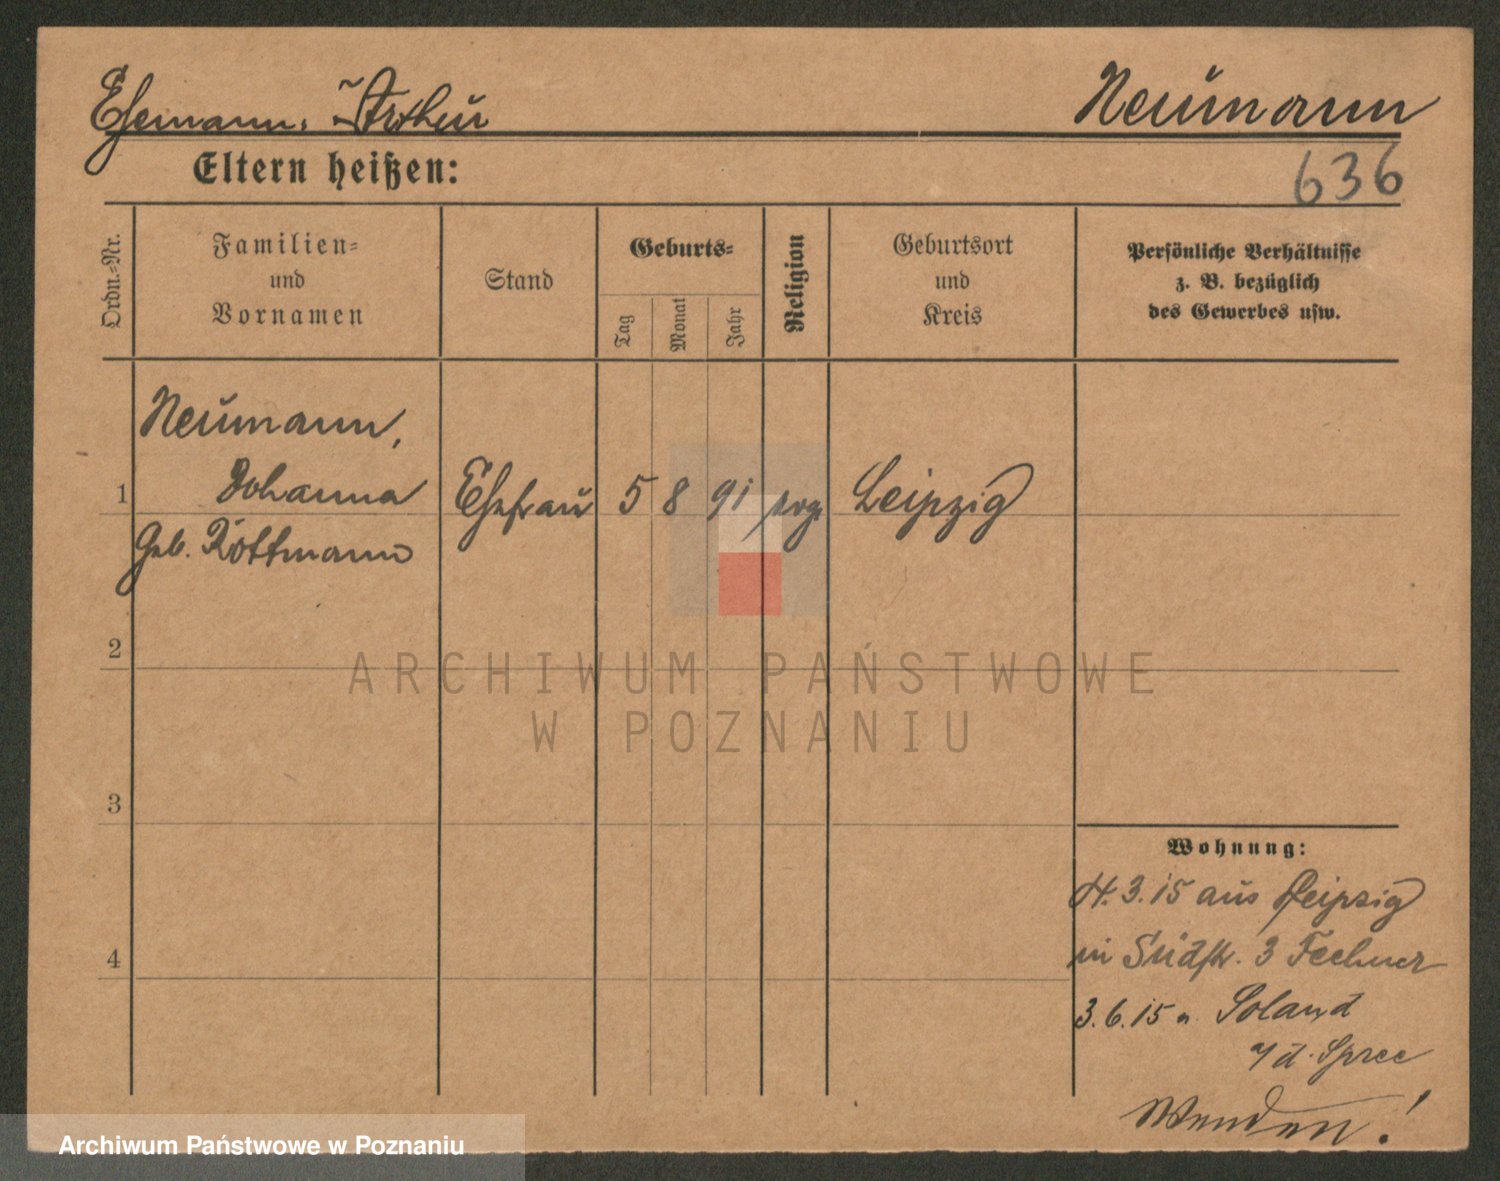 Ehemann: Arthur
Neumann
Eltern heißen:
636
Ordn.-Nr.
Familien-
und
Vornamen
Stand
Geburts-
Tag
Monat
Jahr
Religion
Geburtsort
und
Kreis
Persönliche Verhältnisse
z. B. bezüglich
des Gewerbes usw.
Neumann,
1 Johanna Ehefrau 5 8 91 Leipzig
Geb. Rottmann
2
3
4
Wohnung:
3. 15 aus Leipzig
in Südstr. 3 Fechner
3. 6. 15 n. Soland
a/d. Spree
Wenden!
ARCHIWUM PAŃSTWOWE
W POZNANIU
Archiwum Państwowe w Poznaniu